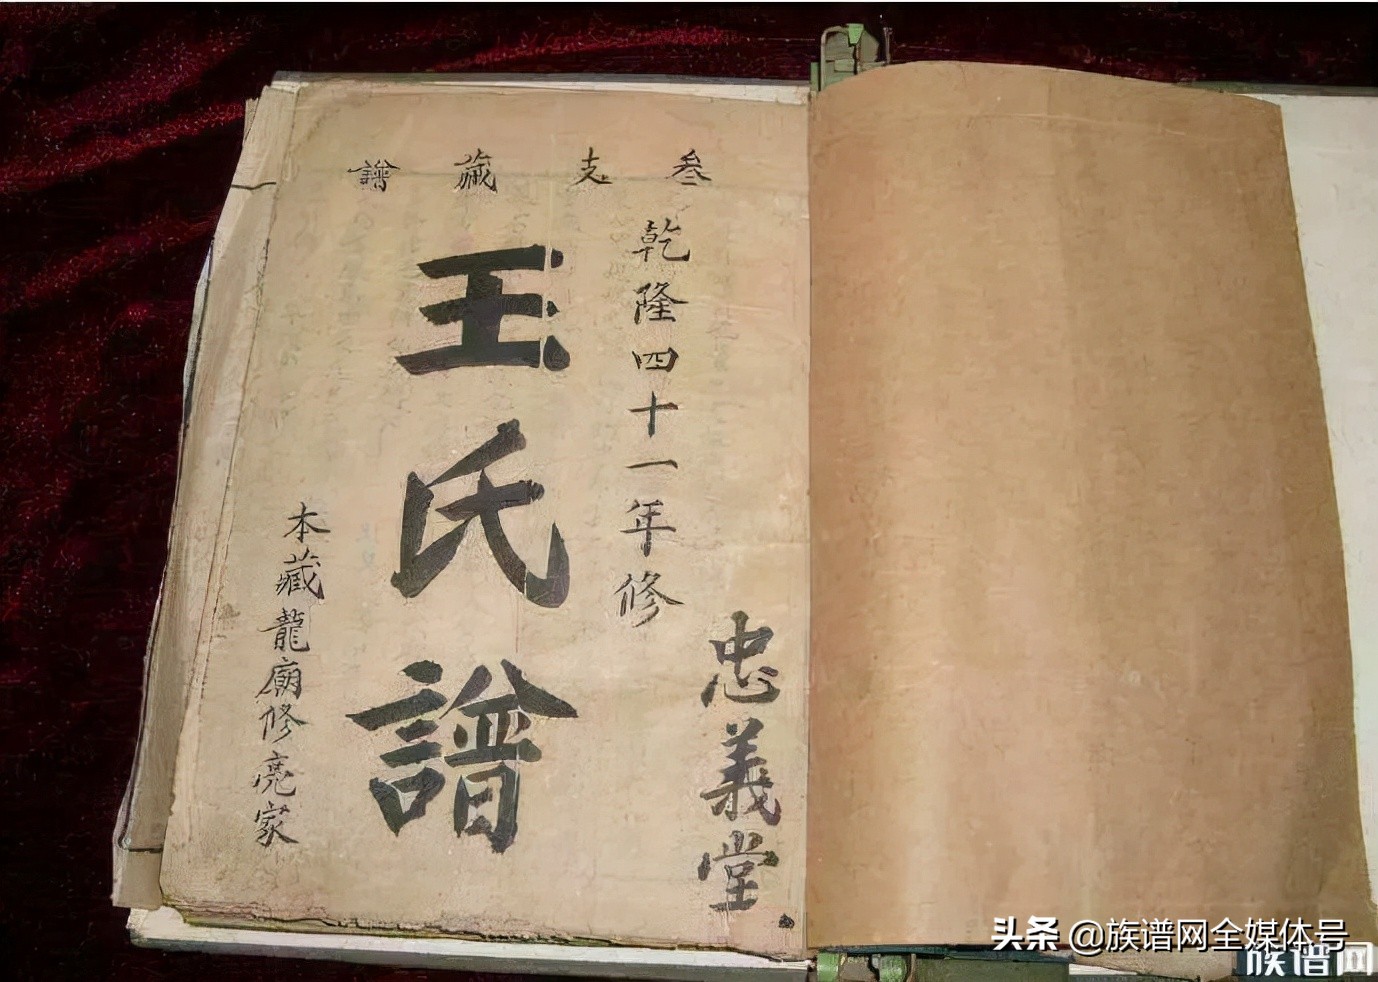 叁支藏譜
忠義堂
乾隆四十一年修
王氏譜
本藏龍廟修亮家
头条 @族谱网全媒体号
族谱网